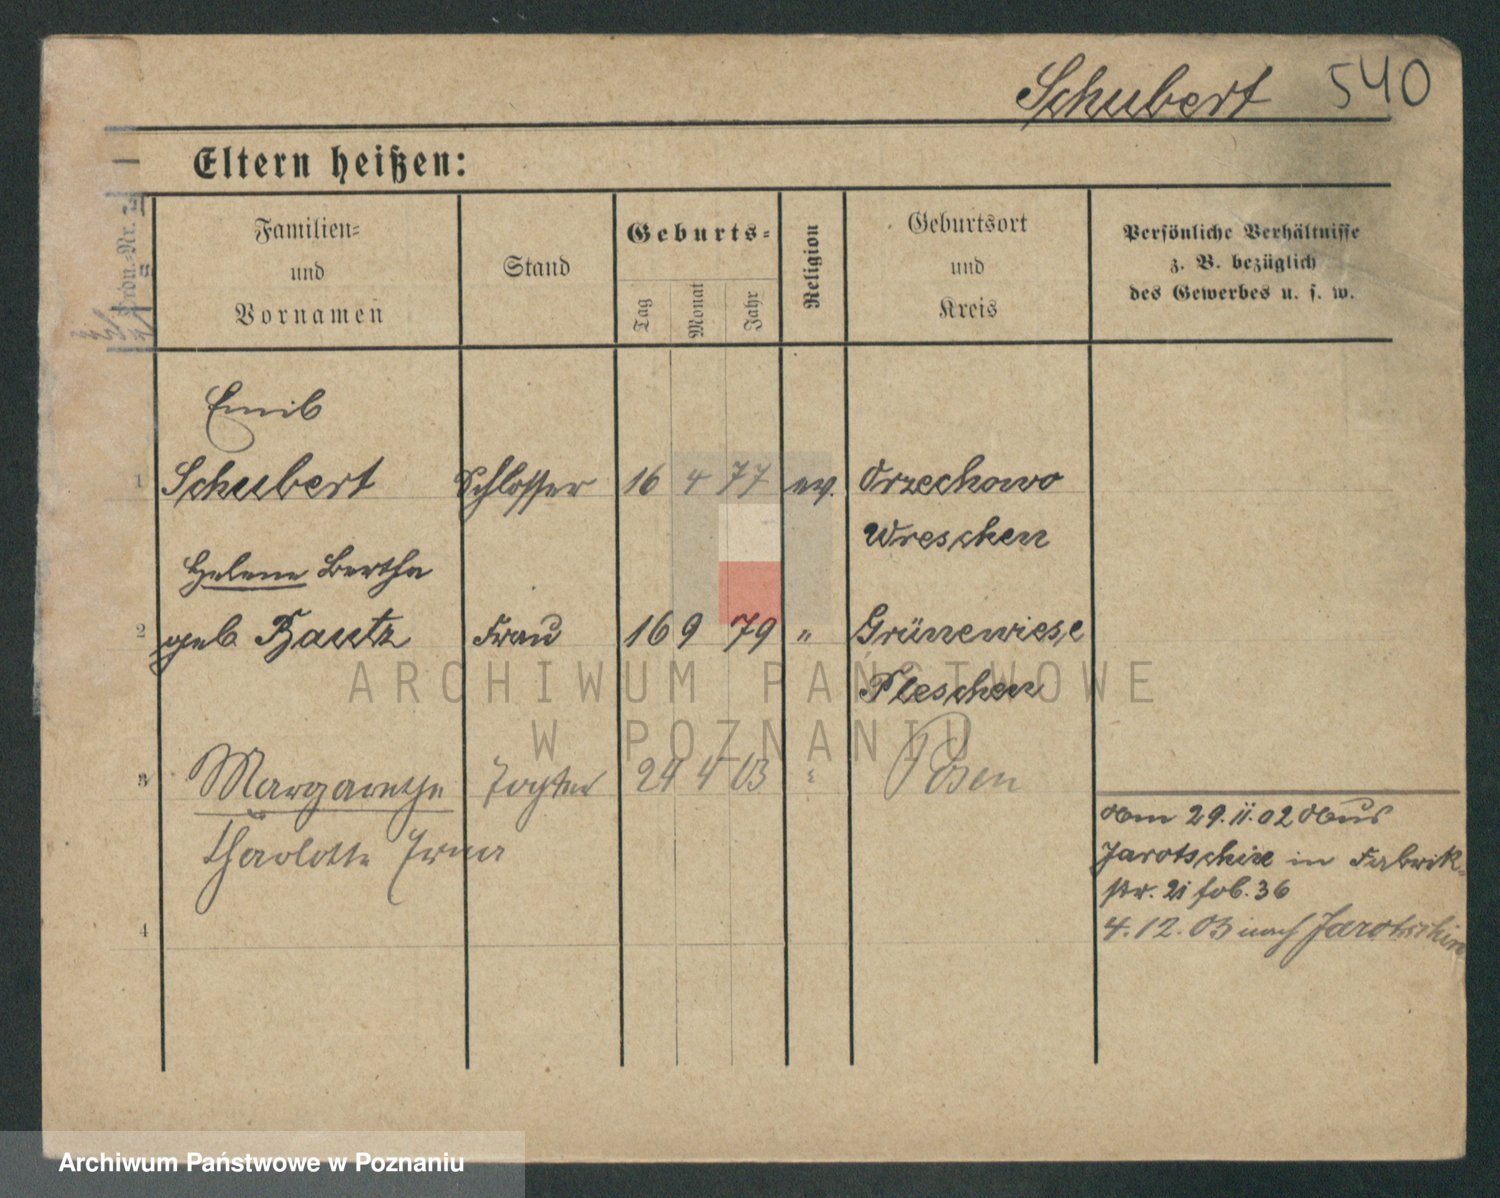 Schubert 540
Eltern heißen:
Ordn.-Nr.
Familien-
und
Vornamen
Stand
Geburts-
Tag
Monat
Jahr
Religion
Geburtsort
und
Kreis
Persönliche Verhältnisse
z. B. bezüglich
des Gewerbes u. s. w.
Emil
1 Schubert Schlosser 16 4 77 ev. Orzechowo
Wreschen
Helene Bertha
2 geb. Bautz Frau 16 9 79 " Grünewiese
Pleschen
ARCHIWUM PAŃSTWOWE
W POZNANIU
3 Margarethe Tochter 24 4 03 " Posen
Charlotte Irma
29.11.02 aus
Jarotschin in Fabrik-
str. 21 fol. 36
4.12.03 nach Jarotschin
4
Archiwum Państwowe w Poznaniu